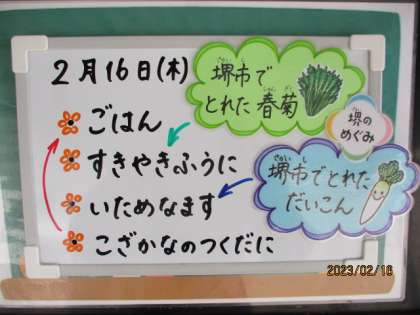 2月16日(木)
ごはん
すきやきふうに
いためなます
こざかなのつくだに
堺市で
とれた春菊
堺の
めぐみ
堺市でとれた
だいこん
2023/02/16